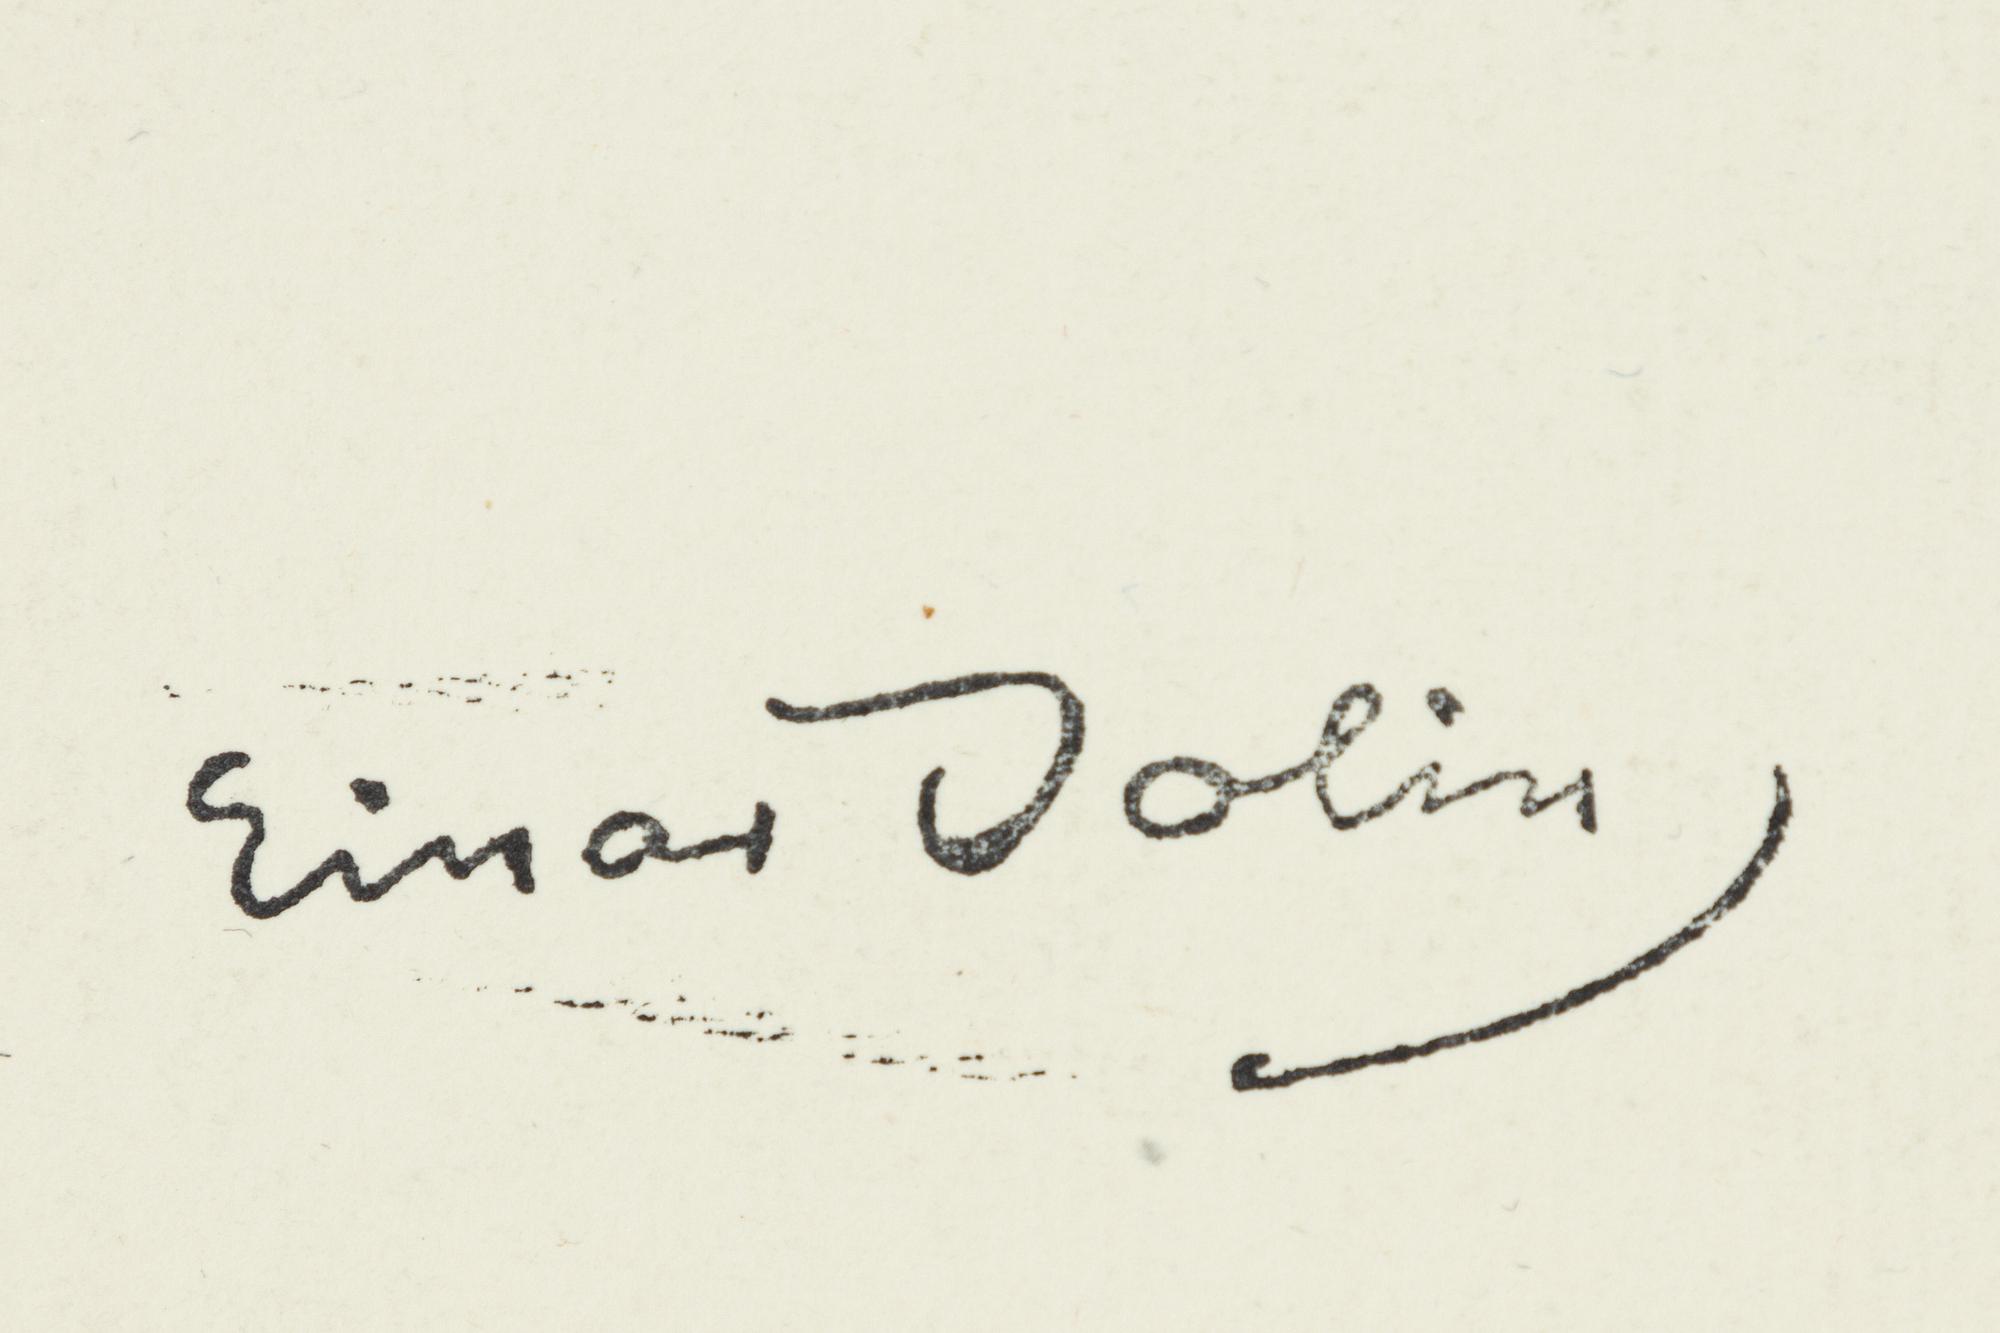 Einar Jolin